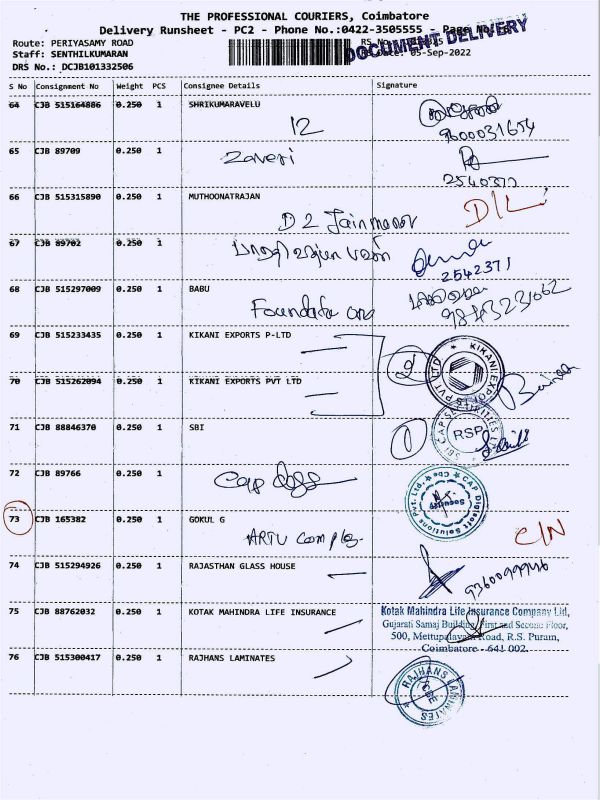 THE PROFESSIONAL COURIERS, Coimbatore
Delivery Runsheet - PC2 - Phone No.:0422-3505555 - Page No.
DOCUMENT DELIVERY
Route: PERIYASAMY ROAD
Staff: SENTHILKUMARAN
05-Sep-2022
DRS No.: DCJB101332506
S No Consignment No Weight PCS Consignee Details Signature
64 CJB 515164886 0.250 1 SHRIKUMARAVELU
12
9600031654
65 CJB 89709 0.250 1 Zaveri
66 CJB 515315890 0.250 1 MUTHOONATRAJAN
D/L
D 2 Jain manor
67 CJB 89702 0.250 1
2542371
68 CJB 515297009 0.250 1 BABU
69 CJB 515233435 0.250 1 KIKANI EXPORTS P-LTD
2
KIKANI EXPORTS PVT LTD
70 CJB 515262094 0.250 1 KIKANI EXPORTS PVT LTD
71 CJB 88846370 0.250 1 SBI
1
RSP
72 CJB 89766 0.250 1 Cap
CAP Digisoft Solutions Pvt. Ltd. Cbe
Security
73 CJB 165382 0.250 1 GOKUL G
C/N
74 CJB 515294926 0.250 1 RAJASTHAN GLASS HOUSE
75 CJB 88762032 0.250 1 KOTAK MAHINDRA LIFE INSURANCE
Kotak Mahindra Life Insurance Company Ltd,
Gujarati Samaj Building, First and Second Floor,
500, Mettupalayam Road, R.S. Puram,
Coimbatore - 641 002.
76 CJB 515300417 0.250 1 RAJHANS LAMINATES
RAJHANS LAMINATES
CBE